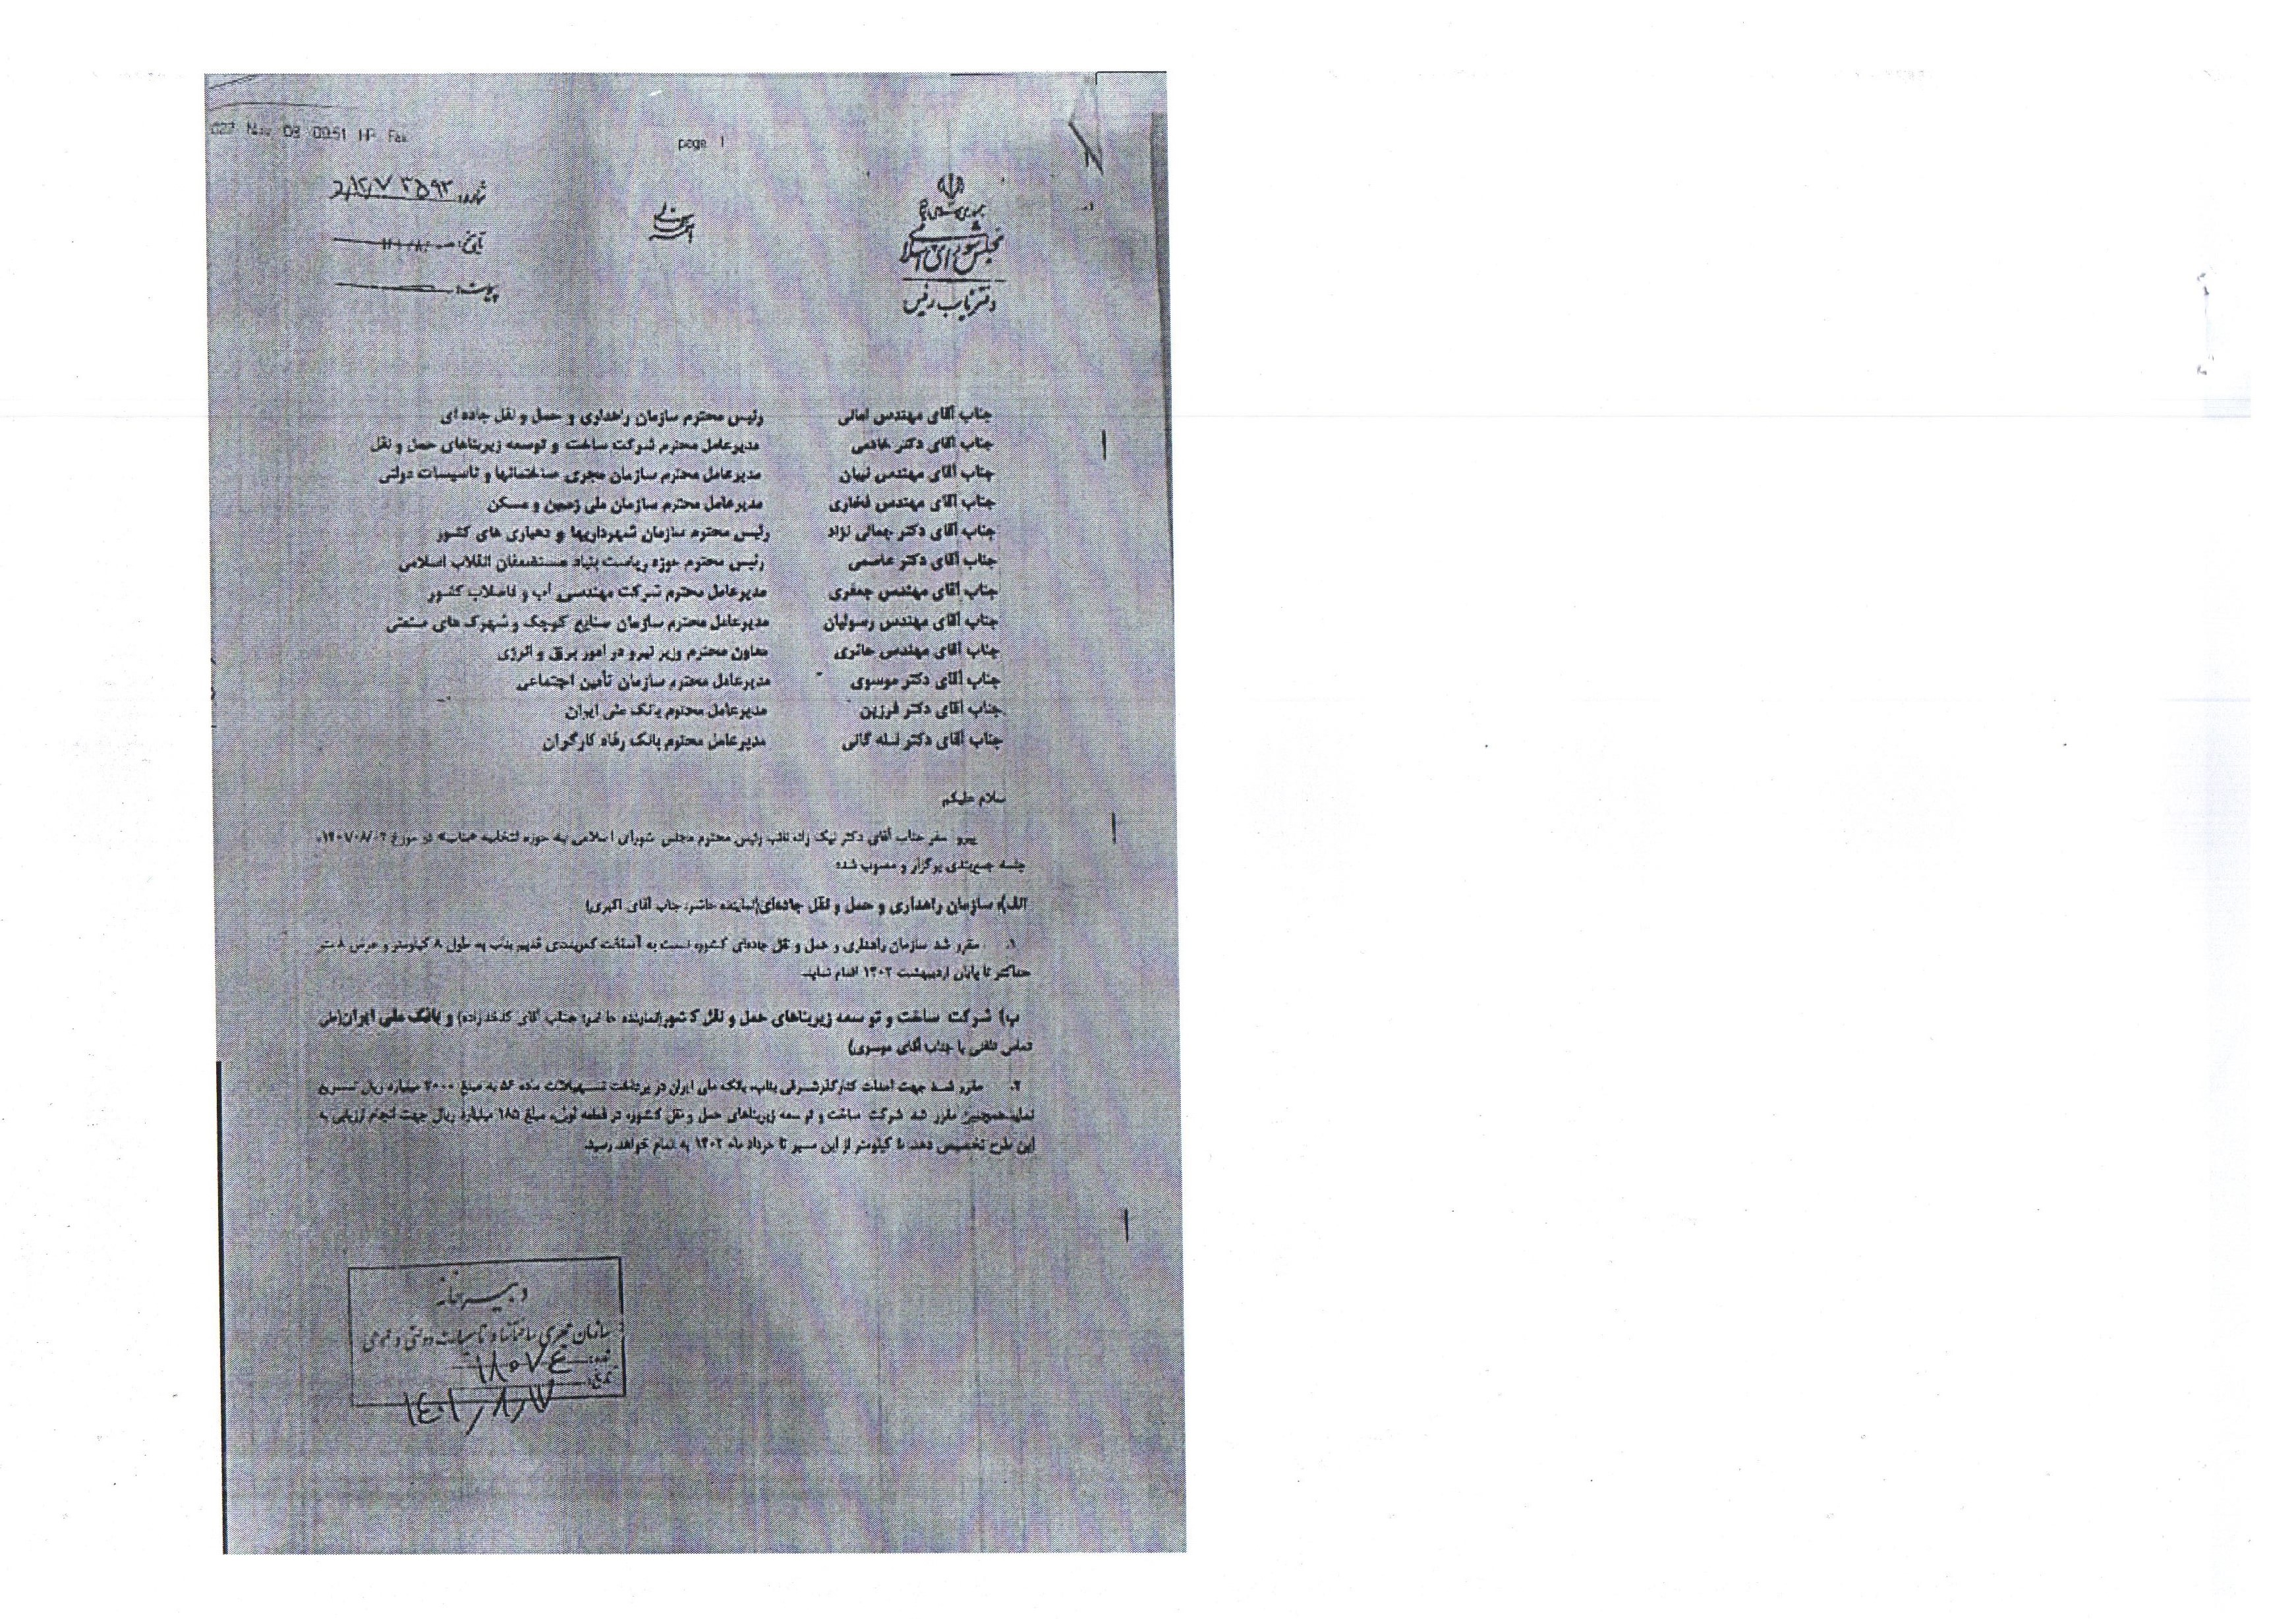 Nov 08 00:51 HP Fax
page 1
شماره: ۳۵۹۳
تاریخ:
پیوست:
جمهوری اسلامی
مجلس شورای اسلامی
دفتر نایب رئیس
جناب آقای مهندس امانی رئیس محترم سازمان راهداری و حمل و نقل جاده ای
جناب آقای دکتر خادمی مدیرعامل محترم شرکت ساخت و توسعه زیربناهای حمل و نقل
جناب آقای مهندس نبیان مدیرعامل محترم سازمان مجری ساختمانها و تاسیسات دولتی
جناب آقای مهندس فخاری مدیرعامل محترم سازمان ملی زمین و مسکن
جناب آقای دکتر جمالی نژاد رئیس محترم سازمان شهرداریها و دهیاری های کشور
جناب آقای دکتر عاصمی رئیس محترم حوزه ریاست بنیاد مستضعفان انقلاب اسلامی
جناب آقای مهندس جعفری مدیرعامل محترم شرکت مهندسی آب و فاضلاب کشور
جناب آقای مهندس رسولیان مدیرعامل محترم سازمان صنایع کوچک و شهرک های صنعتی
جناب آقای مهندس حائری معاون محترم وزیر نیرو در امور برق و انرژی
جناب آقای دکتر موسوی مدیرعامل محترم سازمان تأمین اجتماعی
جناب آقای دکتر فرزین مدیرعامل محترم بانک ملی ایران
جناب آقای دکتر لله گانی مدیرعامل محترم بانک رفاه کارگران
سلام علیکم
پیرو سفر جناب آقای دکتر نیک زاد نائب رئیس محترم مجلس شورای اسلامی به حوزه انتخابیه «بناب» در مورخ
جلسه جمع‌بندی برگزار و مصوب شد:
الف) سازمان راهداری و حمل و نقل جاده‌ای(نماینده حاضر: جناب آقای اکبری)
۱. مقرر شد سازمان راهداری و حمل و نقل جاده‌ای کشور نسبت به آسفالت کمربندی قدیم بناب به طول ۸ کیلومتر و عرض ۸ متر
حداکثر تا پایان اردیبهشت ۱۴۰۲ اقدام نماید.
ب) شرکت ساخت و توسعه زیربناهای حمل و نقل کشور(نماینده حاضر: جناب آقای کدخدازاده) و بانک ملی ایران(طی
تماس تلفنی با جناب آقای موسوی)
۲. مقرر شد جهت احداث کنارگذر شرقی بناب، بانک ملی ایران در پرداخت تسهیلات ماده ۵۶ به مبلغ ۲۰۰۰ میلیارد ریال تسریع
نماید همچنین مقرر شد شرکت ساخت و توسعه زیربناهای حمل و نقل کشور در قطعه اول، مبلغ ۱۸۵ میلیارد ریال جهت انجام ارزیابی به
این طرح تخصیص دهد. ۵ کیلومتر از این مسیر تا خرداد ماه ۱۴۰۲ به اتمام خواهد رسید.
دبیرخانه
سازمان مجری ساختمانها و تاسیسات دولتی و عمومی
نمره: ۱۸۰۷۴
تاریخ: ۱۴۰۱/۸/۱۷